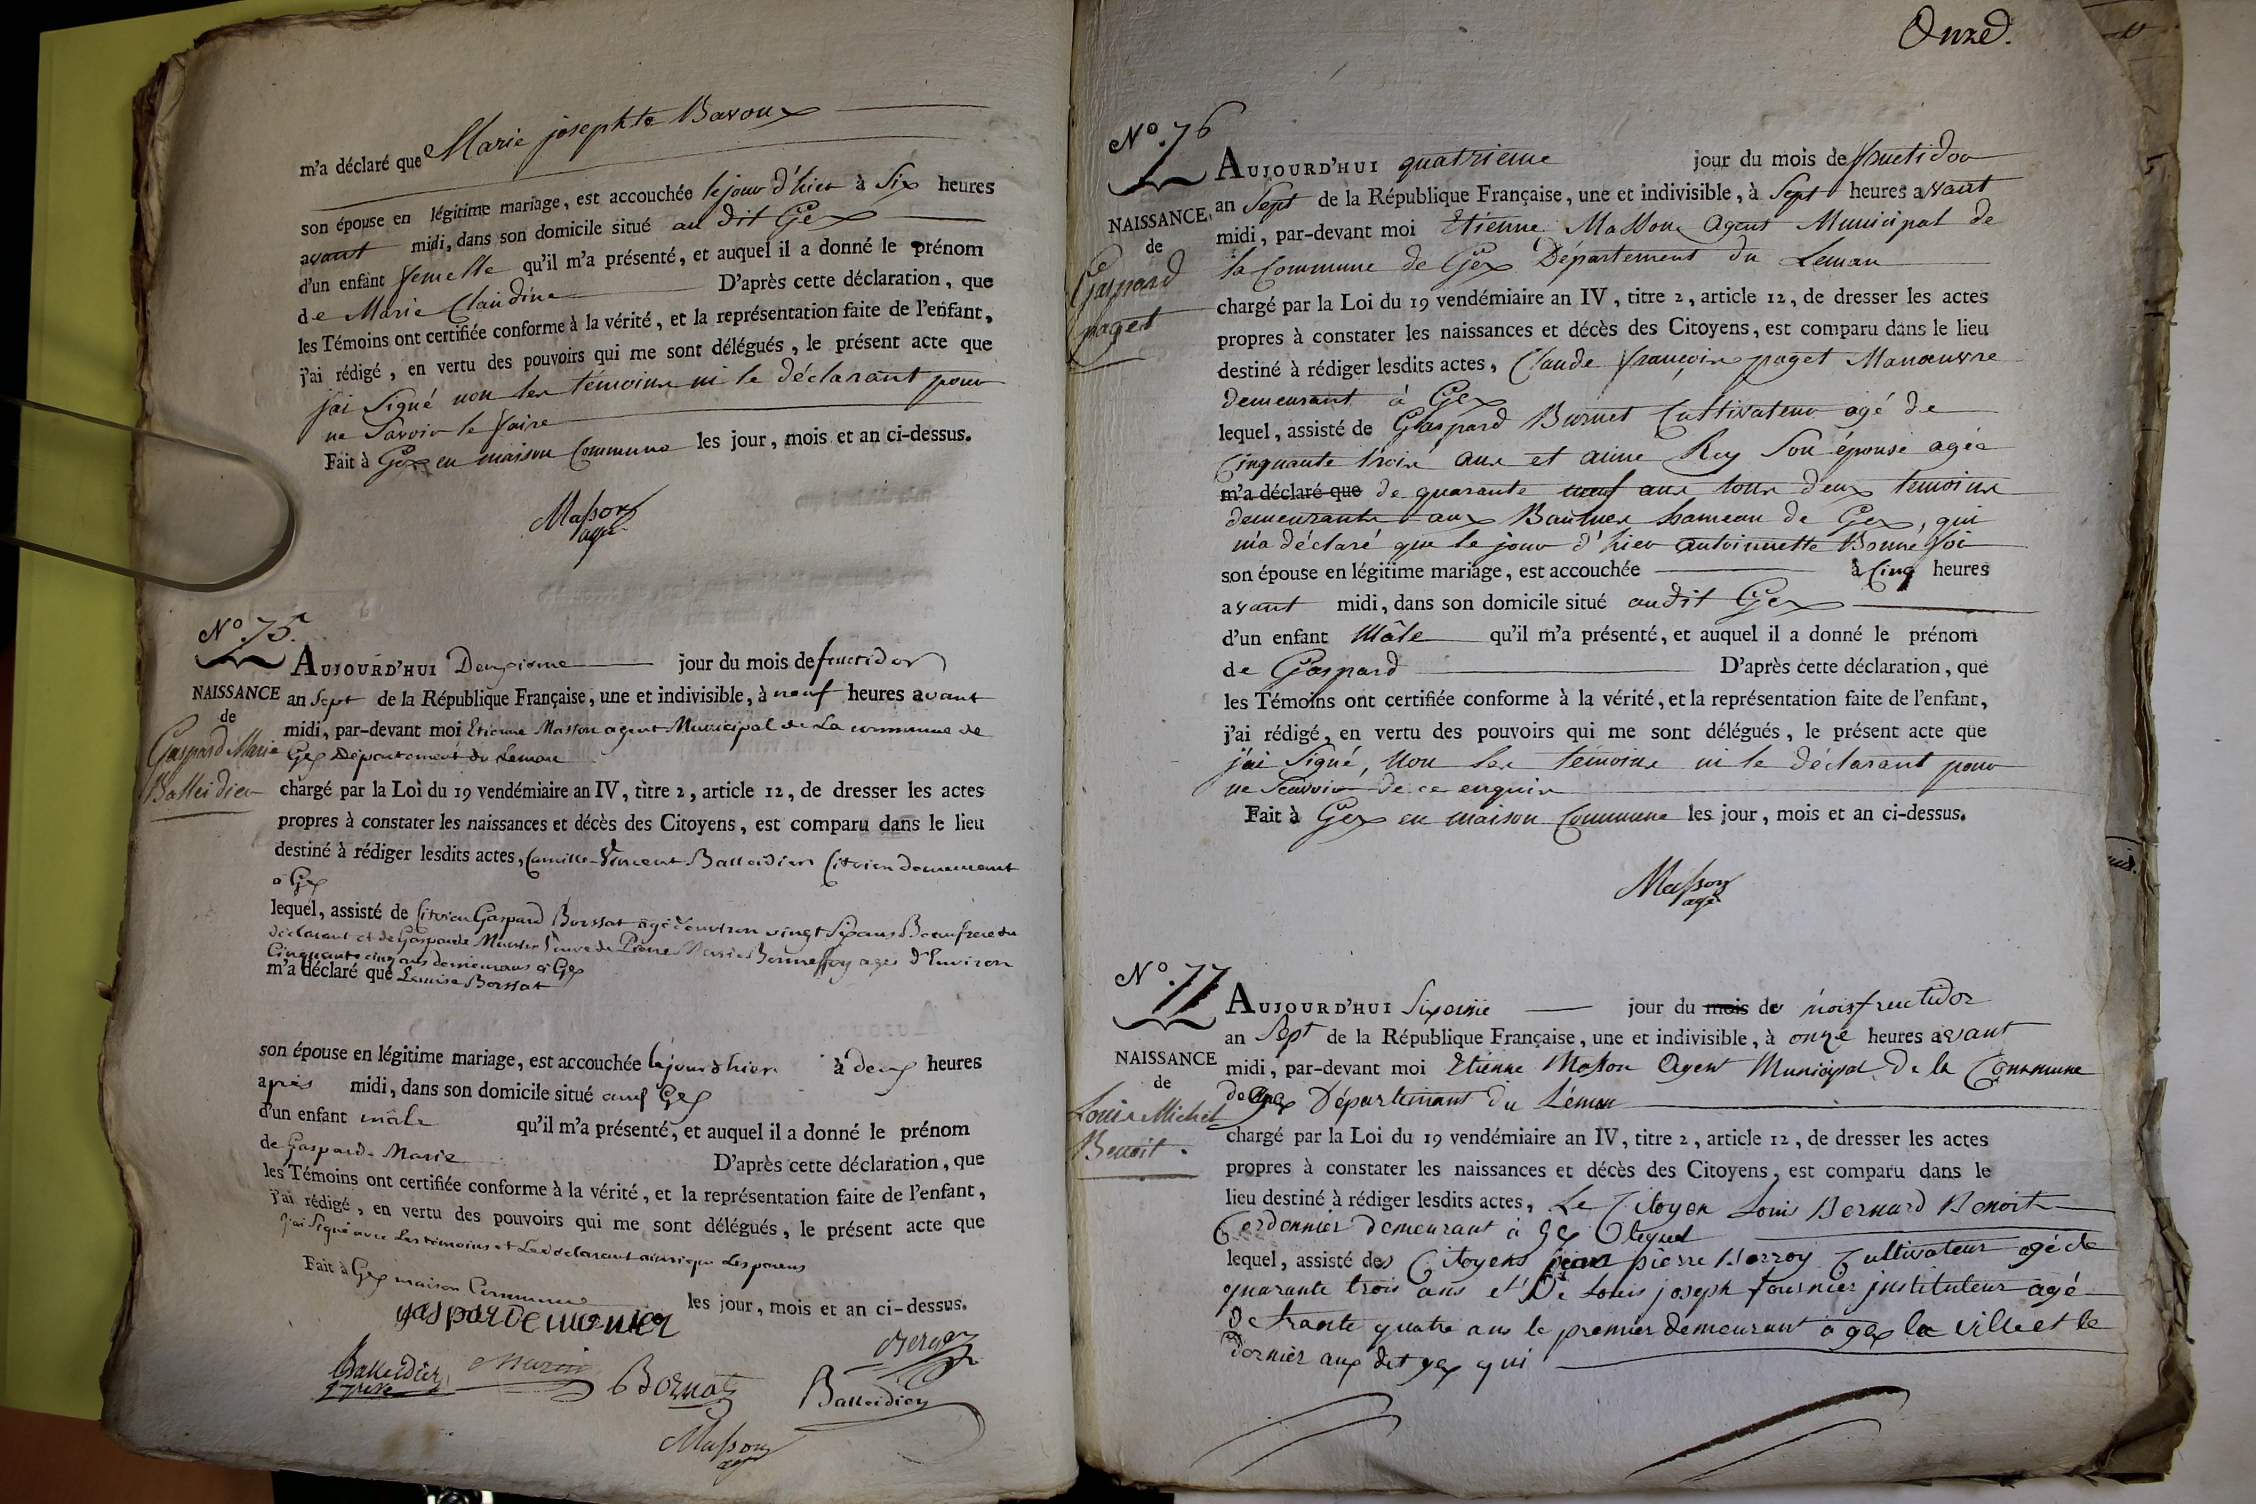 m'a déclaré que Marie josephte Bavoux
son épouse en légitime mariage, est accouchée le jour d'hier à Six heures
avant midi, dans son domicile situé au dit Gex
d'un enfant femelle qu'il m'a présenté, et auquel il a donné le prénom
de Marie Claudine D'après cette déclaration, que
les Témoins ont certifiée conforme à la vérité, et la représentation faite de l'enfant,
j'ai rédigé, en vertu des pouvoirs qui me sont délégués, le présent acte que
j'ai Signé non les témoins ni le déclarant pour
ne Savoir le faire
Fait à Gex en maison Commune les jour, mois et an ci-dessus.
Masson
agt
N.º 75.
AUJOURD'HUI Deuxieme jour du mois de fructidor
NAISSANCE
de
Gaspard Marie
Balleidier
an Sept de la République Française, une et indivisible, à neuf heures avant
midi, par-devant moi Etienne Masson agent Municipal de La commune de
Gex Département du Leman
chargé par la Loi du 19 vendémiaire an IV, titre 2, article 12, de dresser les actes
propres à constater les naissances et décès des Citoyens, est comparu dans le lieu
destiné à rédiger lesdits actes, Camille-Vincent Balleidier Citoien demeurant
à Gex
lequel, assisté de Citoien Gaspard Borssat agé d'environ vingt Six ans Beaufrere du
déclarant et de Gasparde Munier Veuve de Pierre Marie Bonneffoy agée d'Environ
Cinquante cinq ans demeurans à Gex
m'a déclaré que Louise Borssat
son épouse en légitime mariage, est accouchée le jour d'hier à deux heures
après midi, dans son domicile situé aud Gex
d'un enfant mâle qu'il m'a présenté, et auquel il a donné le prénom
de Gaspard-Marie D'après cette déclaration, que
les Témoins ont certifiée conforme à la vérité, et la représentation faite de l'enfant,
j'ai rédigé, en vertu des pouvoirs qui me sont délégués, le présent acte que
j'ai Signé avec Les témoins et Le déclarant ainsi que Les parens
Fait à Gex maison Commune les jour, mois et an ci-dessus.
gasparde munier
Balleidier
Borssat
Balleidier
Masson
agt
Onze.
N.º 76
AUJOURD'HUI quatrieme jour du mois de fructidor
NAISSANCE,
de
Gaspard
paget
an Sept de la République Française, une et indivisible, à Sept heures avant
midi, par-devant moi Etienne Masson Agent Municipal de
la Commune de Gex Département du Leman
chargé par la Loi du 19 vendémiaire an IV, titre 2, article 12, de dresser les actes
propres à constater les naissances et décès des Citoyens, est comparu dans le lieu
destiné à rédiger lesdits actes, Claude françois paget Manœuvre
demeurant à Gex
lequel, assisté de Gaspard Burnet Cultivateur agé de
Cinquante trois ans et aimé Rey Son épouse agée
m'a déclaré que de quarante neuf ans tous deux temoins
demeurants aux Baumes hameau de Gex, qui
m'a déclaré que le jour d'hier antoinnette Bonnefoi
son épouse en légitime mariage, est accouchée à Cinq heures
avant midi, dans son domicile situé audit Gex
d'un enfant Mâle qu'il m'a présenté, et auquel il a donné le prénom
de Gaspard D'après cette déclaration, que
les Témoins ont certifiée conforme à la vérité, et la représentation faite de l'enfant,
j'ai rédigé, en vertu des pouvoirs qui me sont délégués, le présent acte que
j'ai Signé, Non les témoins ni le déclarant pour
ne Scavoir de ce enquis
Fait à Gex en maison Commune les jour, mois et an ci-dessus.
Masson
agt
N.º 77
AUJOURD'HUI Sixeme jour du mois de mois fructidor
NAISSANCE
de
Louis Michel
Benoit.
an Sept de la République Française, une et indivisible, à onze heures avant
midi, par-devant moi Etienne Masson Agent Municipal de la Commune
de Gex Département du Léman
chargé par la Loi du 19 vendémiaire an IV, titre 2, article 12, de dresser les actes
propres à constater les naissances et décès des Citoyens, est comparu dans le
lieu destiné à rédiger lesdits actes, Le Citoyen Louis Bernard Benoit
Cordonnier demeurant à Gex lequel
lequel, assisté des Citoyens jean pierre Cultivateur agé de
quarante trois ans et De Louis joseph fournier jnstituteur agé
De trante quatre ans le premier demeurant a gex la ville et le
dernier aux dit gex qui